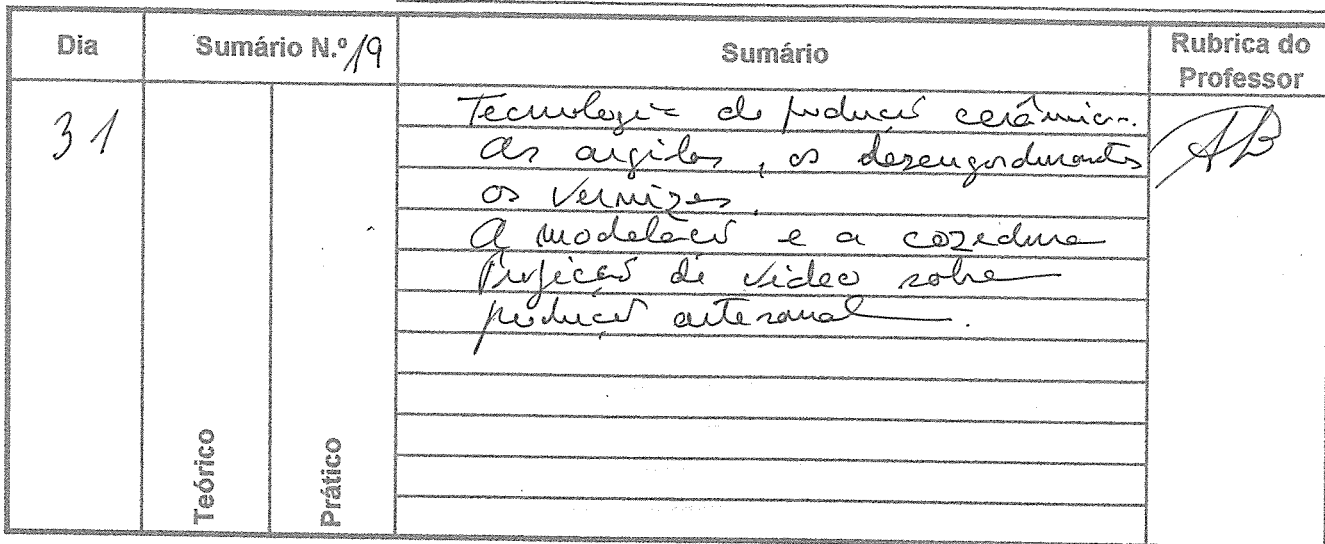 Dia
Sumário N.º 19
Sumário
Rubrica do
Professor
31
Tecnologia de produção cerâmica.
As argilas, os desengordurantes
os vernizes.
A modelação e a cozedura
Projeção de vídeo sobre
produção artesanal.
AB
Teórico
Prático